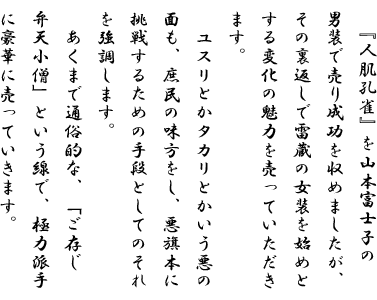 『人肌孔雀』を山本富士子の
男装で売り成功を収めましたが、
その裏返しで雷蔵の女装を始めと
する変化の魅力を売っていただき
ます。
ユスリとかタカリとかいう悪の
面も、庶民の味方をし、悪旗本に
挑戦するための手段としてのそれ
を強調します。
あくまで通俗的な、「ご存じ
弁天小僧」という線で、極力派手
に豪華に売っていきます。